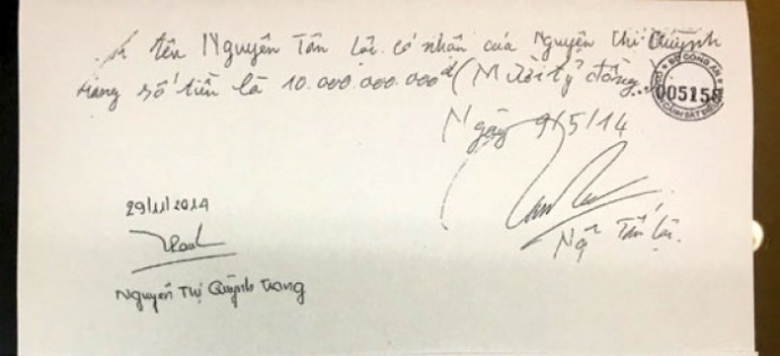 tên Nguyễn Tấn Lợi có nhận của Nguyễn Thị Quỳnh
trang số tiền là 10.000.000.000đ (Mười tỷ đồng)
BỘ CÔNG AN
005158
CẢNH SÁT ĐIỀU
Ngày 9/5/14
29/11/2014
Ng Tấn Lợi.
Nguyễn Thị Quỳnh Trang